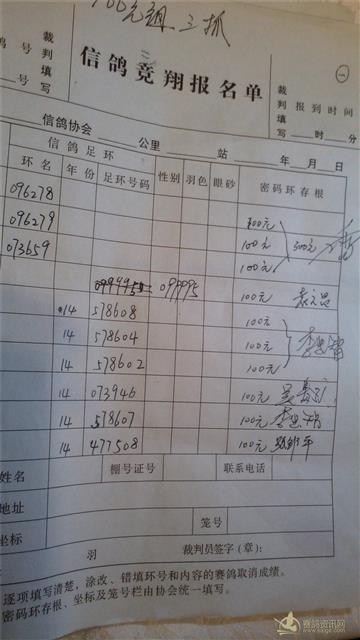 100元组 三抓
信鸽竞翔报名单
㊀
裁判填写
鸽号
号
裁判填写
报到时间
时 分
信鸽协会 公里 站 年 月 日
信鸽足环
环名 年份 足环号码 性别 羽色 眼砂 密码环存根
096278 100元
096279 100元 300元
073659 100元
099995 100元
14 578608 100元
14 578604 100元
14 578602 100元
14 073946 100元
14 578607 100元
14 477508 100元
姓名 棚号证号 联系电话
地址
坐标 笼号
羽 裁判员签字(章):
逐项填写清楚,涂改、错填环号和内容的赛鸽取消成绩。
密码环存根、坐标及笼号栏由协会统一填写。
赛鸽资讯网
www.saige.com